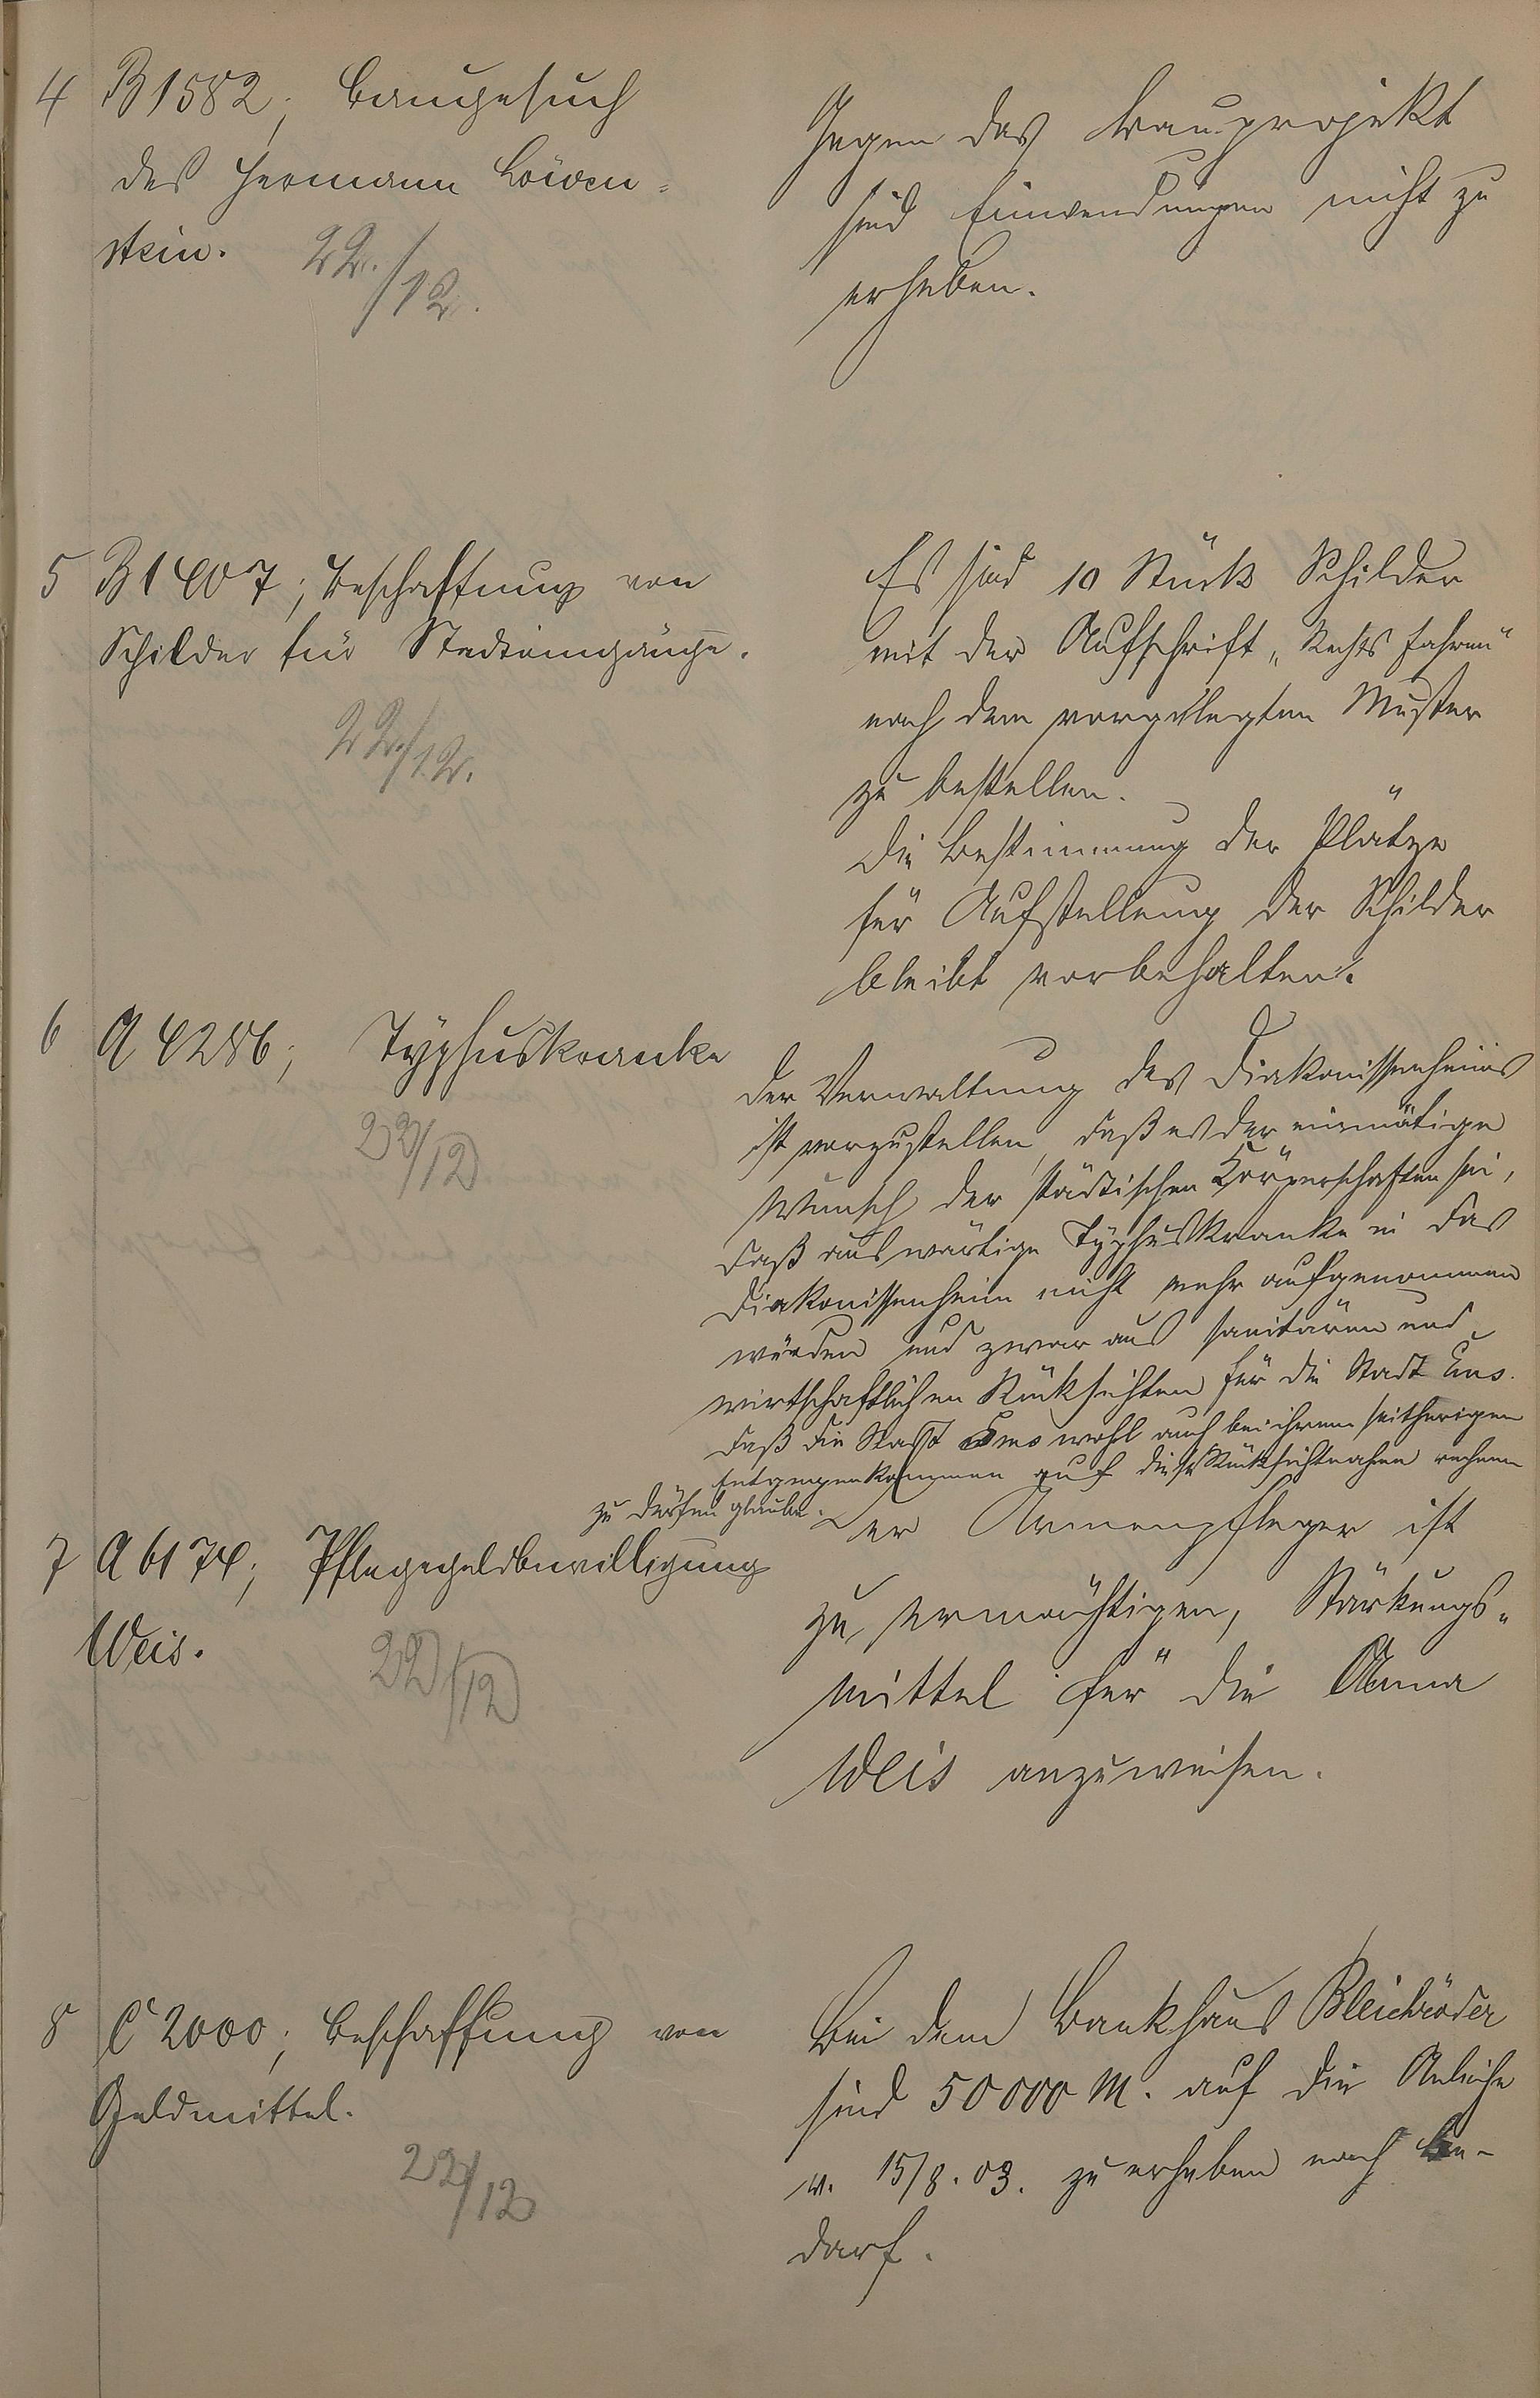 4 B 1582; Baugesuch
des Hermann Löwen=
stein. 22./12.
Gegen das Bauprojekt
sind Einwendungen nicht zu
erheben.
5 B 1407; Beschaffung von
Schilder für Stadteingänge.
22./12.
Es sind 10 Stück Schilder
mit der Aufschrift „Rechts fahren“
nach dem vorgelegten Muster
zu bestellen.
Die Bestimmung der Plätze
für Aufstellung der Schilder
bleibt vorbehalten.
6 A 4286; Typhuskranke
22/12
Der Verwaltung des Diakonissenheims
ist vorzustellen, daß es der einmütige
Wunsch der städtischen Körperschaften sei,
daß auswärtige Typhuskranke in das
Diakonissenheim nicht mehr aufgenommen
würden und zwar aus sanitären und
wirtschaftlichen Rücksichten für die Stadt Ems.
Daß die Stadt Ems wohl auch bei ihrem seitherigen
Entgegenkommen auf diese Rücksichtnahme rechnen
zu dürfen glaube.
7 A 6174; Pflegegeldbewilligung
Weis.
22/12
Der Armenpfleger ist
zu ermächtigen, Stärkungs=
mittel für die Anna
Weis anzuweisen.
8 C 2000; Beschaffung von
Geldmittel.
22/12
Bei dem Bankhaus Bleichröder
sind 50000 M. auf die Anleihe
v. 15/8.03. zu erheben nach Be-
darf.